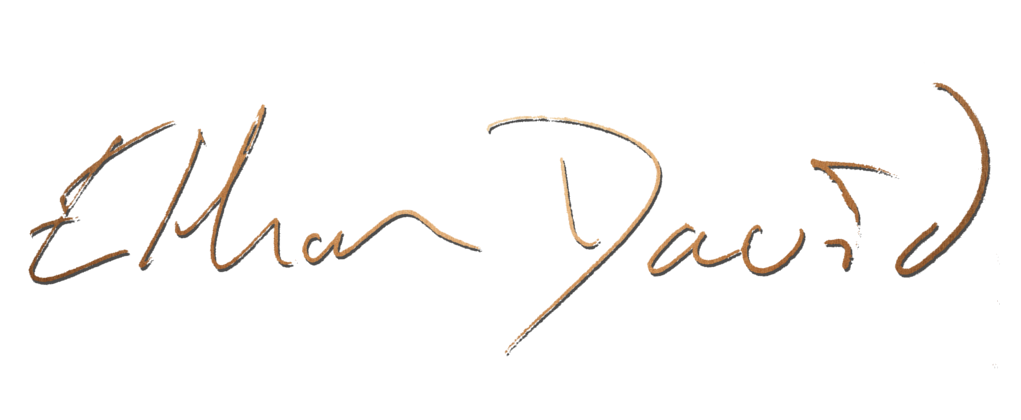 Ethan David